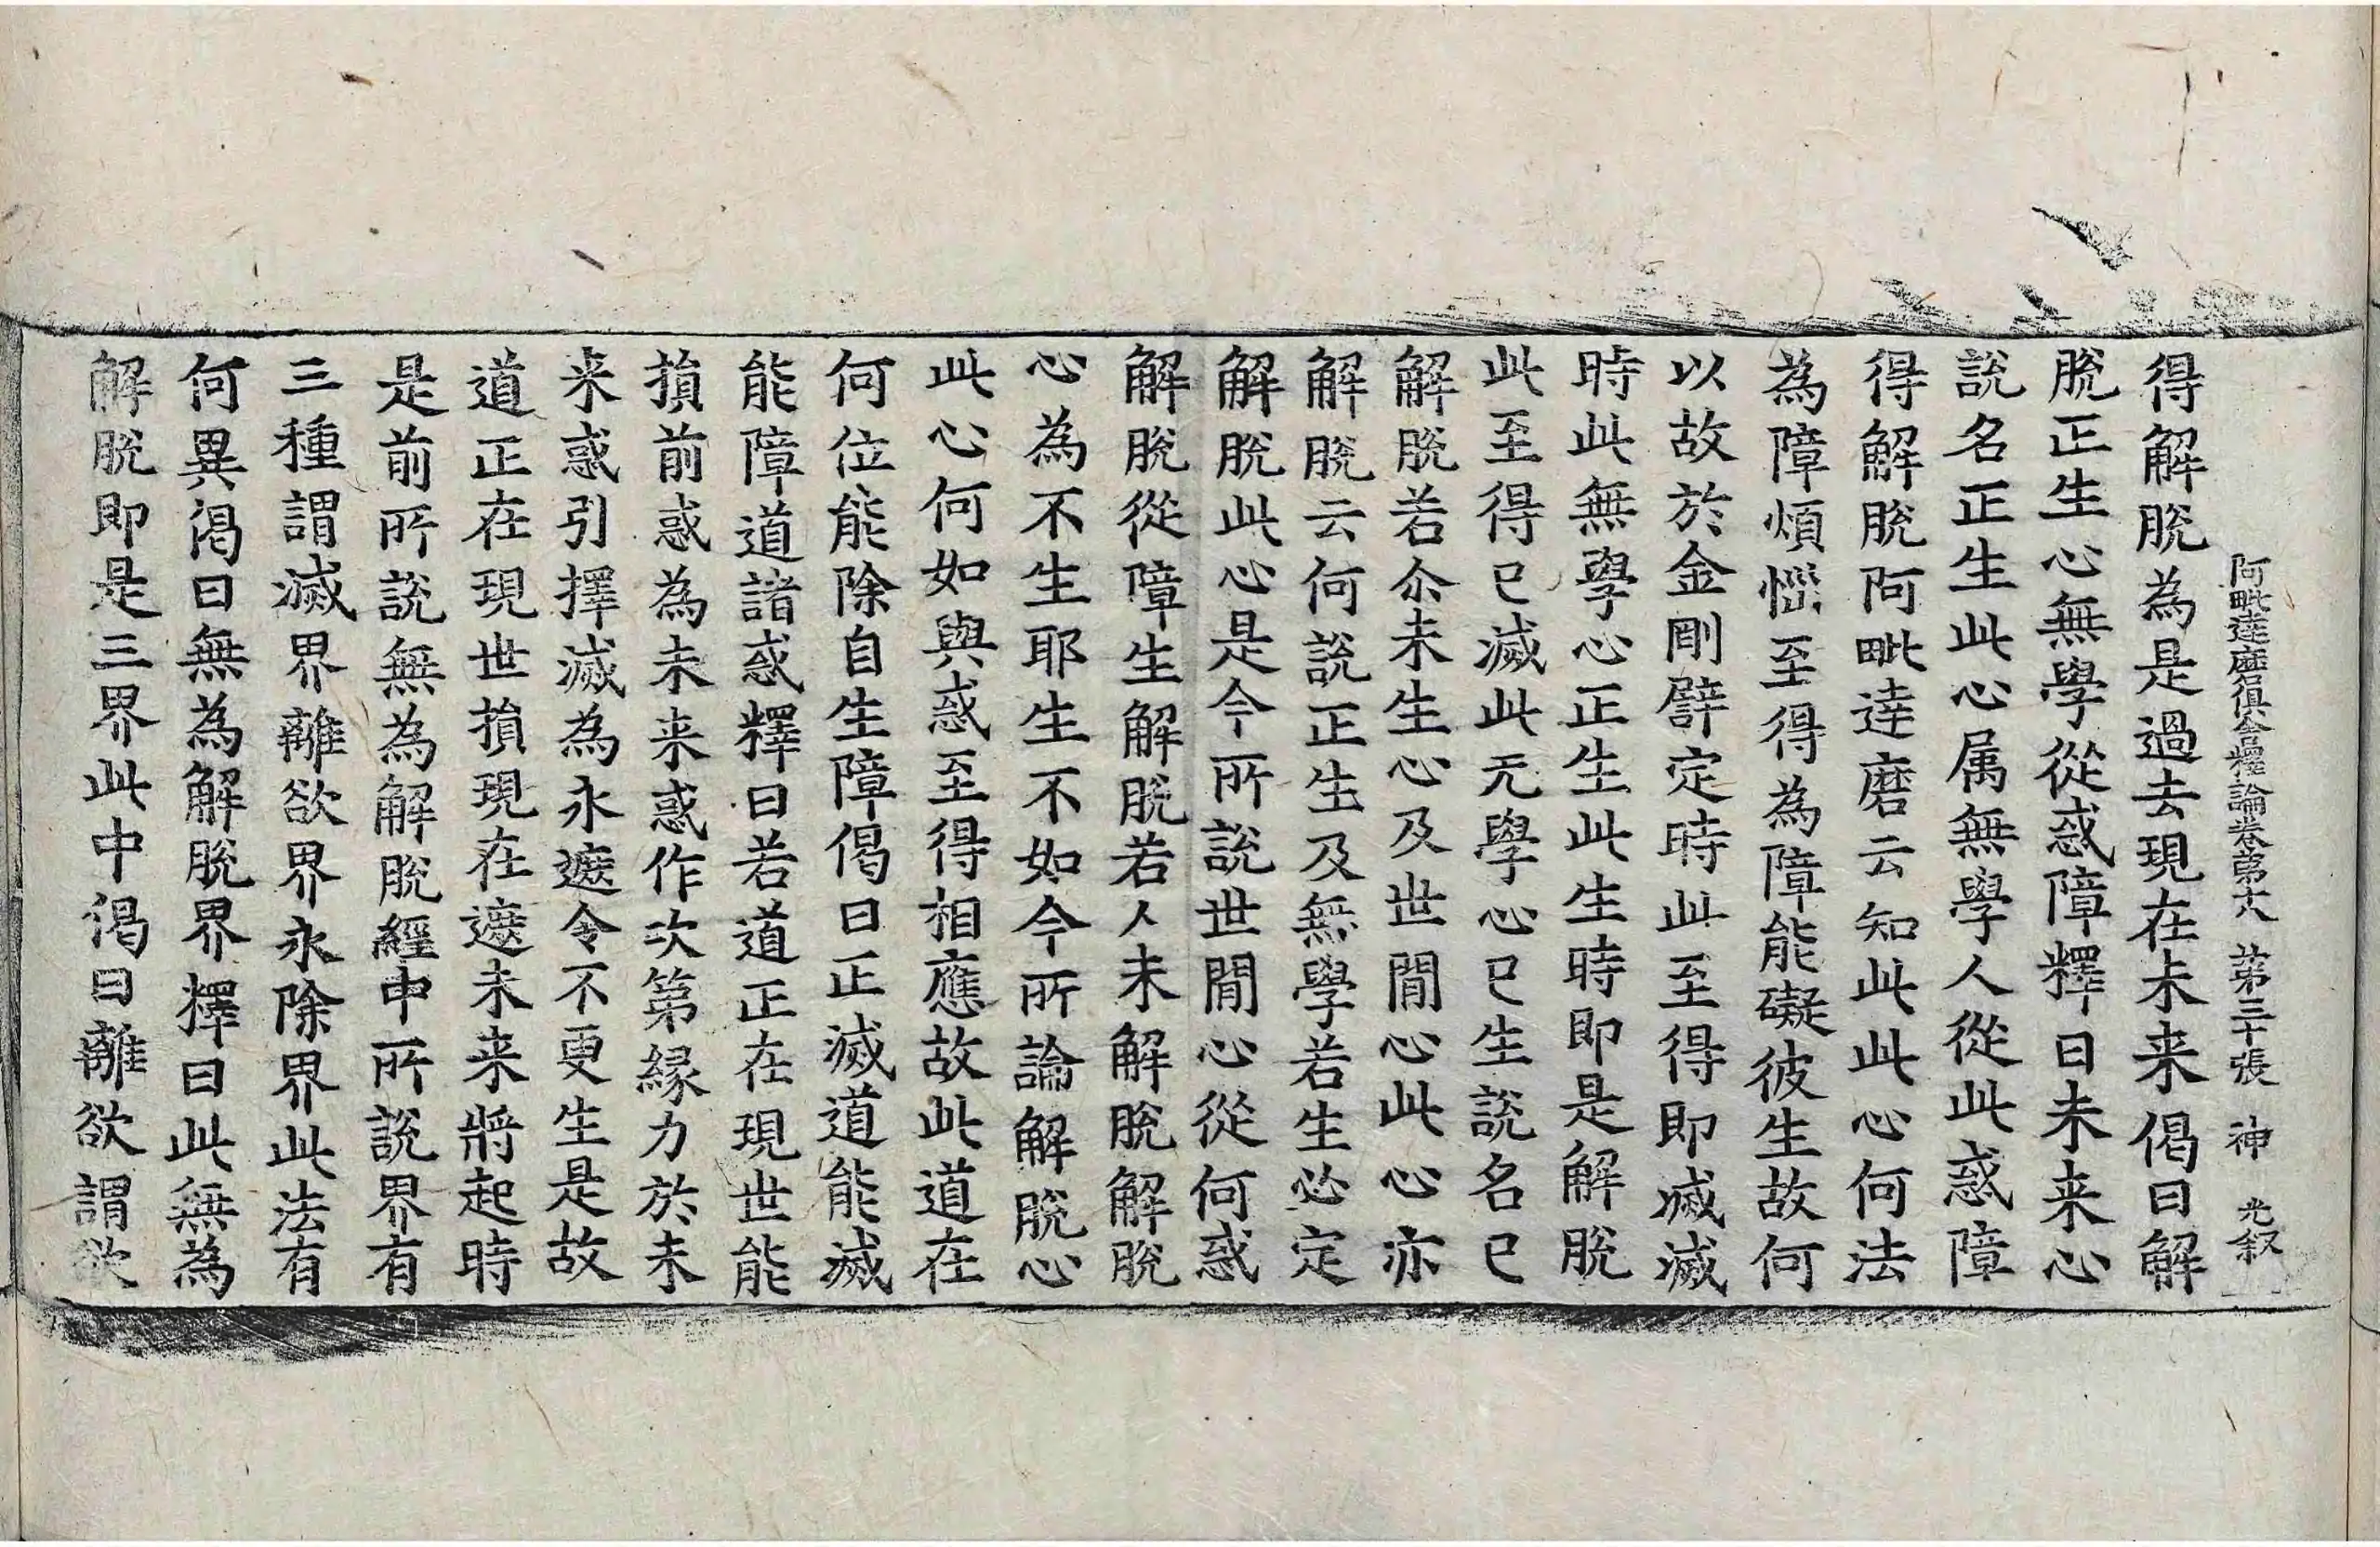 阿毗達磨俱舍釋論卷第十八 第三十張 神 光叙
得解脫為是過去現在未来偈曰解
脫正生心無學從惑障釋曰未来心
說名正生此心属無學人從此惑障
得解脫阿毗達磨云知此此心何法
為障煩惱至得為障能礙彼生故何
以故於金剛譬定時此至得即滅滅
時此無學心正生此生時即是解脫
此至得已滅此无學心已生說名已
解脫若尒未生心及世間心此心亦
解脫云何說正生及無學若生必定
解脫此心是今所說世間心從何惑
解脫從障生解脫若人未解脫解脫
心為不生耶生不如今所論解脫心
此心何如與惑至得相應故此道在
何位能除自生障偈曰正滅道能滅
能障道諸惑釋曰若道正在現世能
損前惑為未来惑作次第緣力於未
来惑引擇滅為永遮令不更生是故
道正在現世損現在遮未来將起時
是前所說無為解脫經中所說界有
三種謂滅界離欲界永除界此法有
何異偈曰無為解脫界釋曰此無為
解脫即是三界此中偈曰離欲謂欲